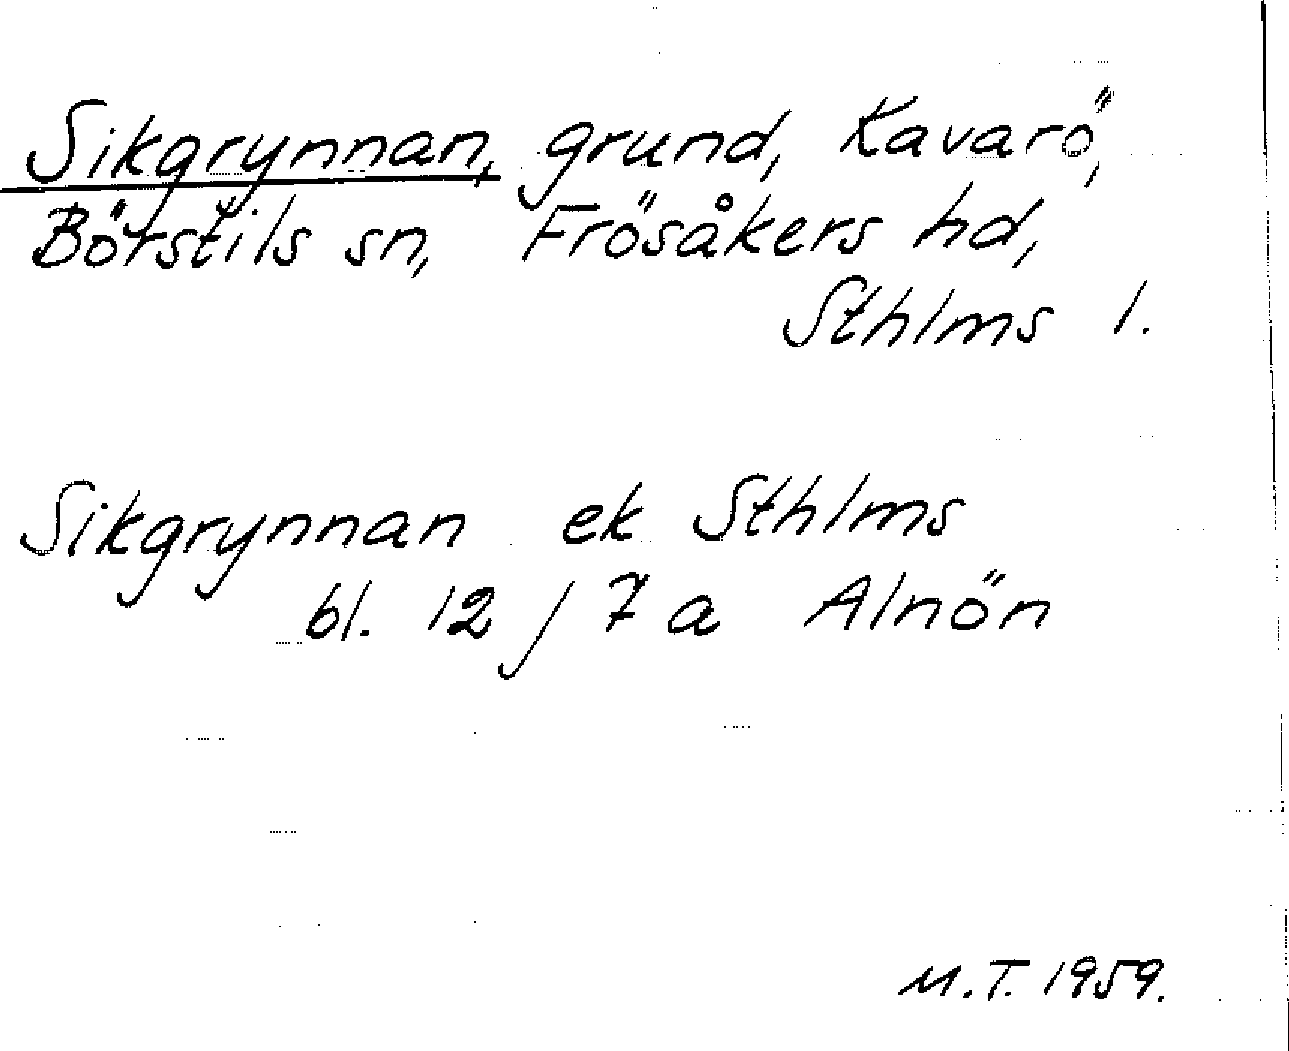 Sikgrynnan, grund, Kavarö,
Börstils sn, Frösåkers hd,
Sthlms l.
Sikgrynnan ek Sthlms
bl. 12 / 7 a Alnön
M.T. 1959.